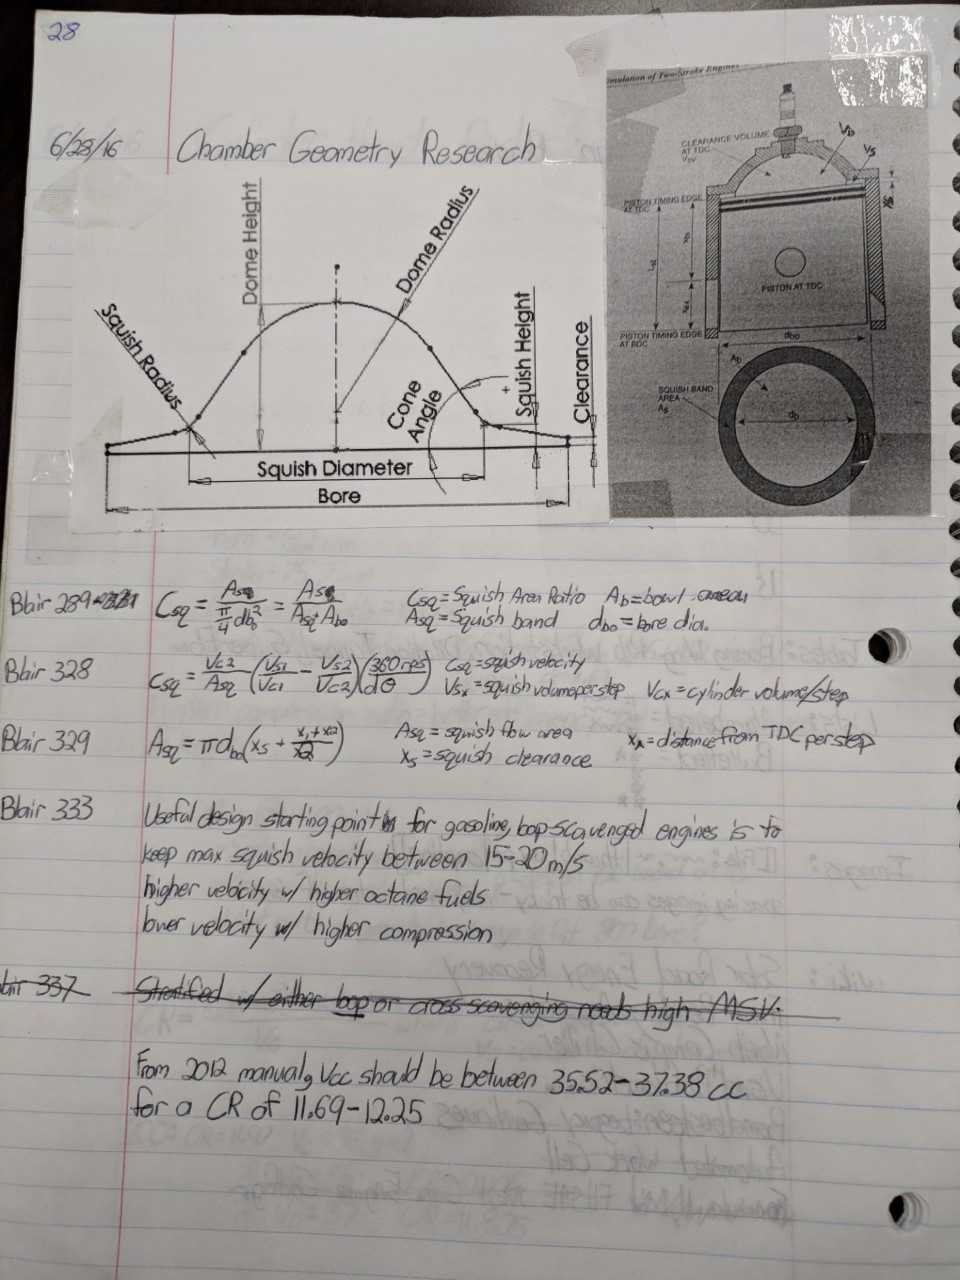 28
6/28/16 Chamber Geometry Research
Squish Radius
Dome Height
Dome Radius
Cone Angle
Squish Height
Clearance
Squish Diameter
Bore
Simulation of Two-Stroke Engines
CLEARANCE VOLUME
AT TDC
Vcv
Vb
Vs
PISTON TIMING EDGE
AT TDC
PISTON AT TDC
PISTON TIMING EDGE
AT BDC
dbo
Ab
SQUISH BAND
AREA
As
db
Blair 289 Csq = Asq / (π/4 dbo²) = Asq / (Asq + Abo) Csq = Squish Area Ratio Ab = bowl area
Asq = Squish band dbo = bore dia.
Blair 328 Csq = Vc2/Asq (Vs1/Vc1 - Vs2/Vc2)(360rps/dθ) Csq = sqish velocity
Vsx = squish volume per step Vcx = cylinder volume/step
Blair 329 Asq = πdbo(xs + (x1+x2)/2) Asq = sqwish flow area xx = distance from TDC per step
xs = squish clearance
Blair 333 Useful design starting point for gasoline, loop-scavenged engines is to
keep max squish velocity between 15-20 m/s
higher velocity w/ higher octane fuels
lower velocity w/ higher compression
Blair 337 Stratified w/ either loop or cross scavenging needs high MSV.
From 2012 manual, Vcc should be between 35.52-37.38 cc
for a CR of 11.69-12.25